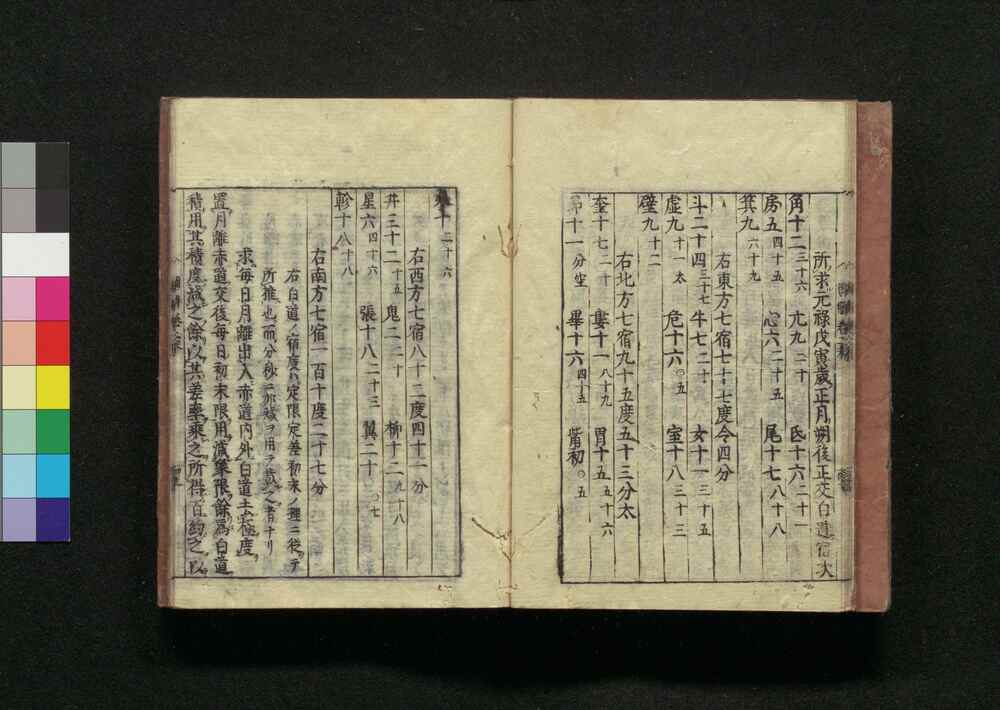 所求元禄戊寅歳正月朔後正交白道宿次
角十二 三十六 亢九 二十 氐十六 二十一
房五 四十五 心六 二十五 尾十七 八十八
箕九 六十九
右東方七宿七十七度令四分
斗二十四 三十七 牛七 二十 女十一 三十五
虚九 十一太 危十六 〇五 室十八 三十三
壁九 十二
右北方七宿九十五度五十三分太
奎十七 二十 婁十一 八十九 胃十五 五十六
昴十一 分空 畢十六 四十五 觜初 〇五
参十 二十六
右西方七宿八十二度四十一分
井三十二 十五 鬼二 二十 柳十二 九十八
星六 四十六 張十八 二十三 翼二十 〇七
軫十八 十八
右南方七宿一百十度二十七分
右白道ノ宿度ハ定限定差初末ノ理ニ從テ
所推也而分秒ニ
求毎日月離出入赤道内外白道去極度
置月離赤道交後毎日初末限用減象限餘為白道
積用其積度減之餘以其差率乘之所得百約之以